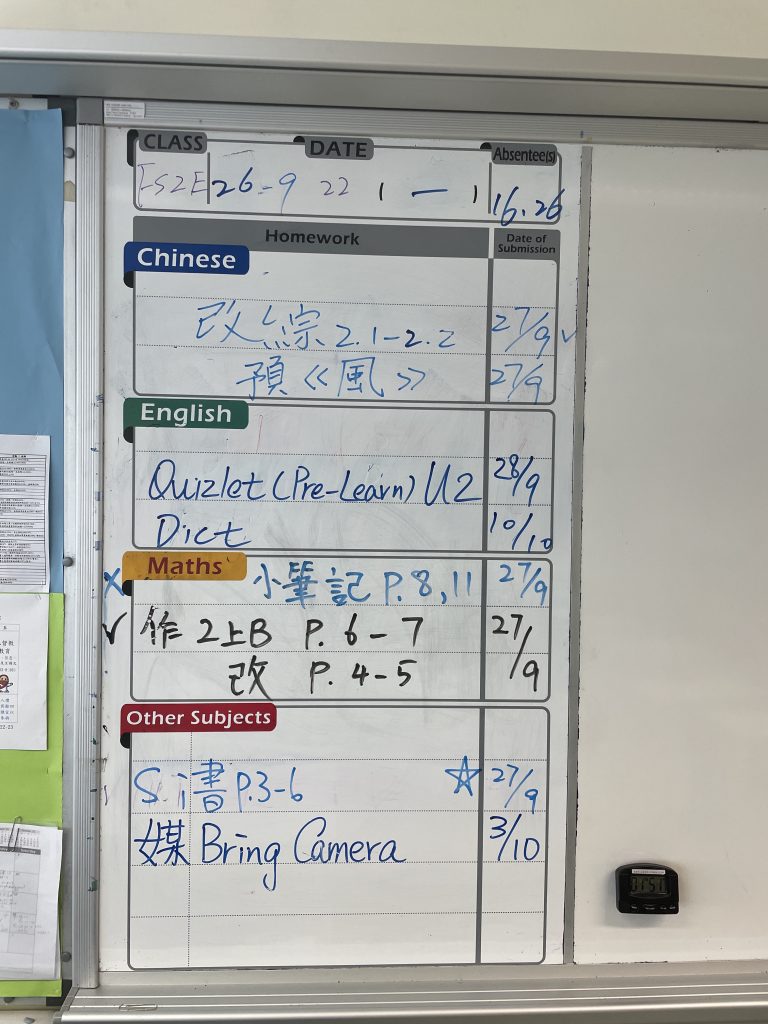 CLASS DATE Absentee(s)
26-9 22 (一) 16.26
Homework Date of Submission
Chinese
改 綜 2.1-2.2 27/9 ✓
預《風》 27/9
English
Quizlet (Pre-Learn) U2 28/9
Dict 10/10
Maths
X 小筆記 P.8,11 27/9
✓ 作 2上B P.6-7 27/9
改 P.4-5
Other Subjects
S. 書 P.3-6 ☆ 27/9
媒 Bring Camera 3/10